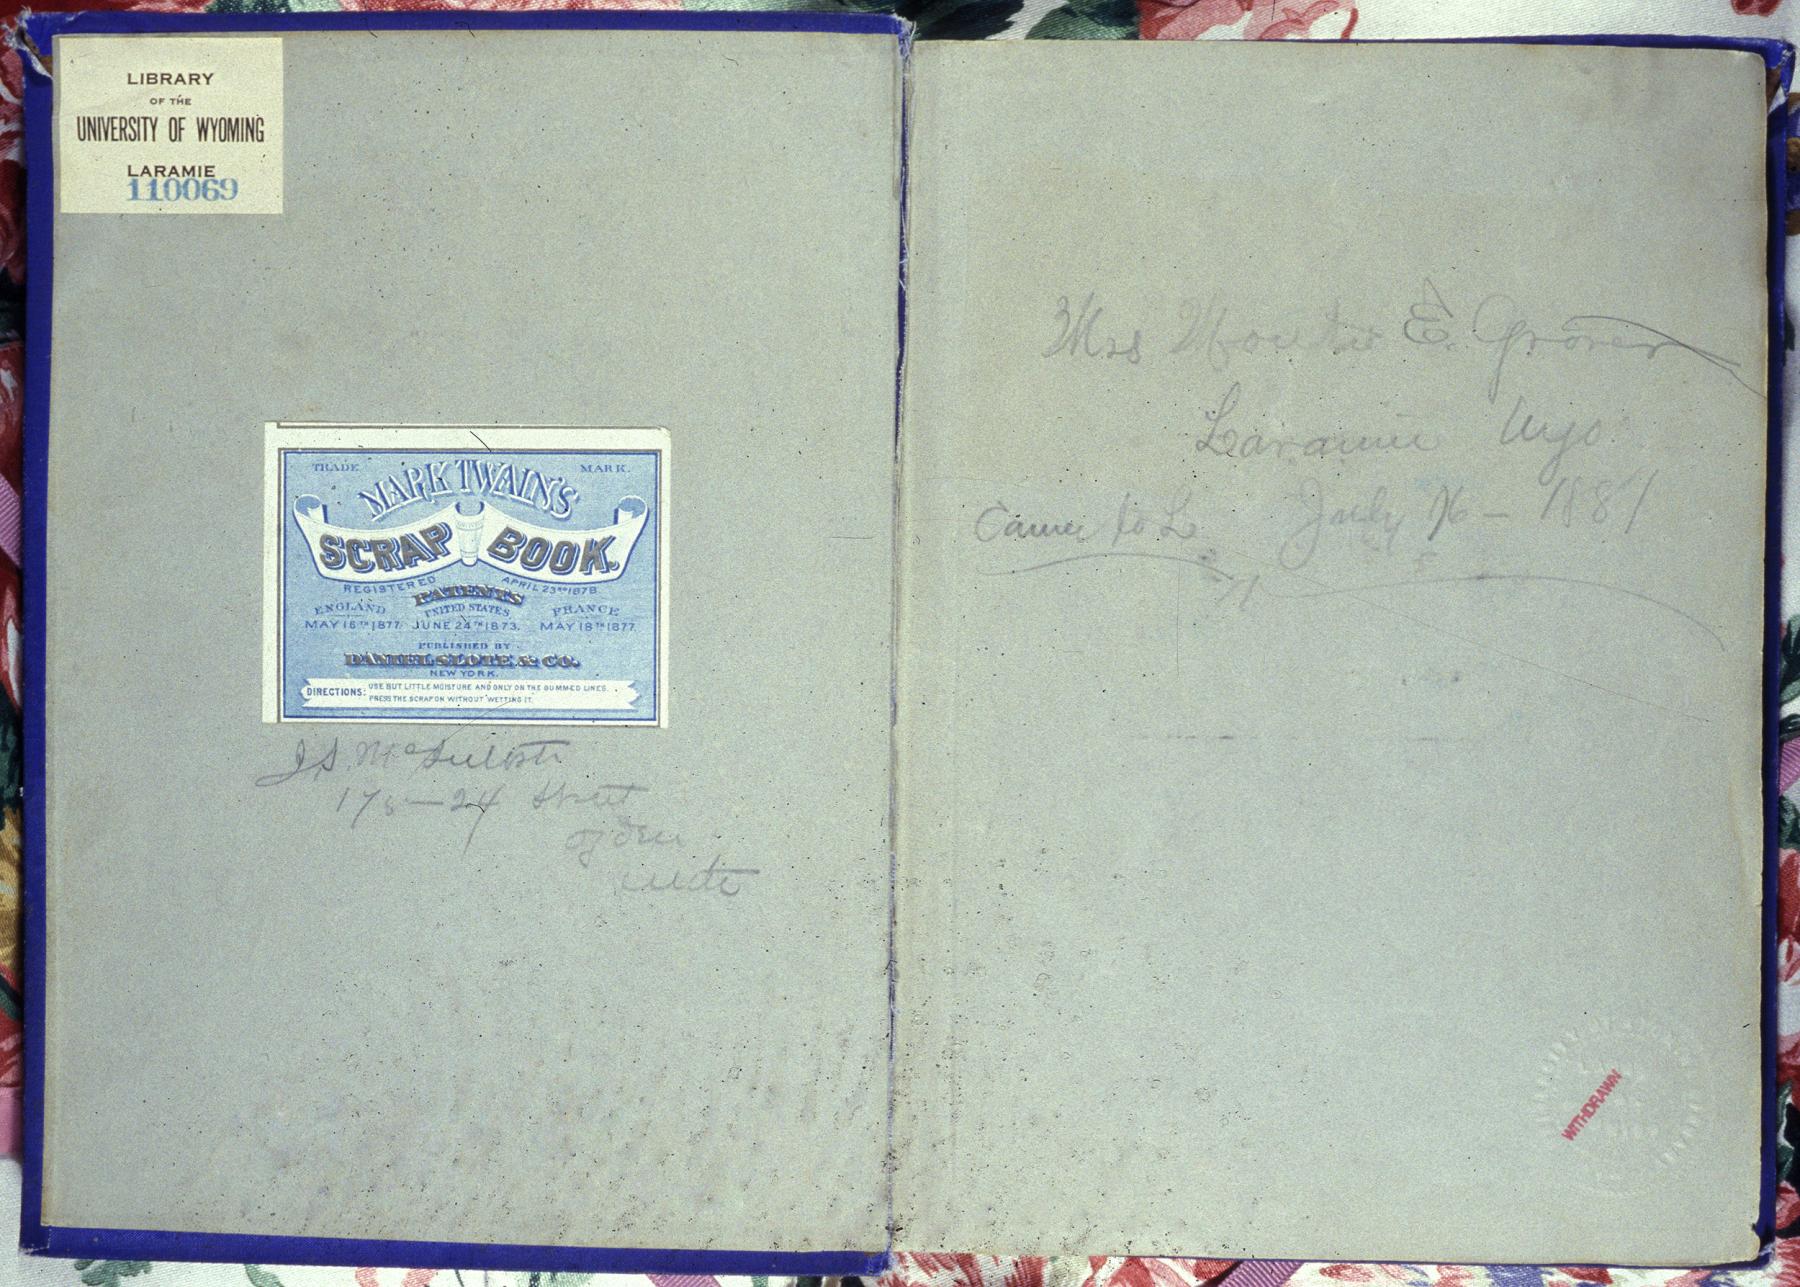 LIBRARY
OF THE
UNIVERSITY OF WYOMING
LARAMIE
110069
TRADE MARK.
MARK TWAIN'S
SCRAP BOOK.
REGISTERED APRIL 23RD 1878.
PATENTS
ENGLAND UNITED STATES FRANCE
MAY 16TH 1877. JUNE 24TH 1873. MAY 18TH 1877.
PUBLISHED BY
DANIEL SLOTE & CO.
NEW YORK.
DIRECTIONS: USE BUT LITTLE MOISTURE AND ONLY ON THE GUMMED LINES.
PRESS THE SCRAP ON WITHOUT WETTING IT.
J.S.
24 Street
Ogden
Mrs E. Grover
Laramie Wyo
Came to L July 1881
WITHDRAWN